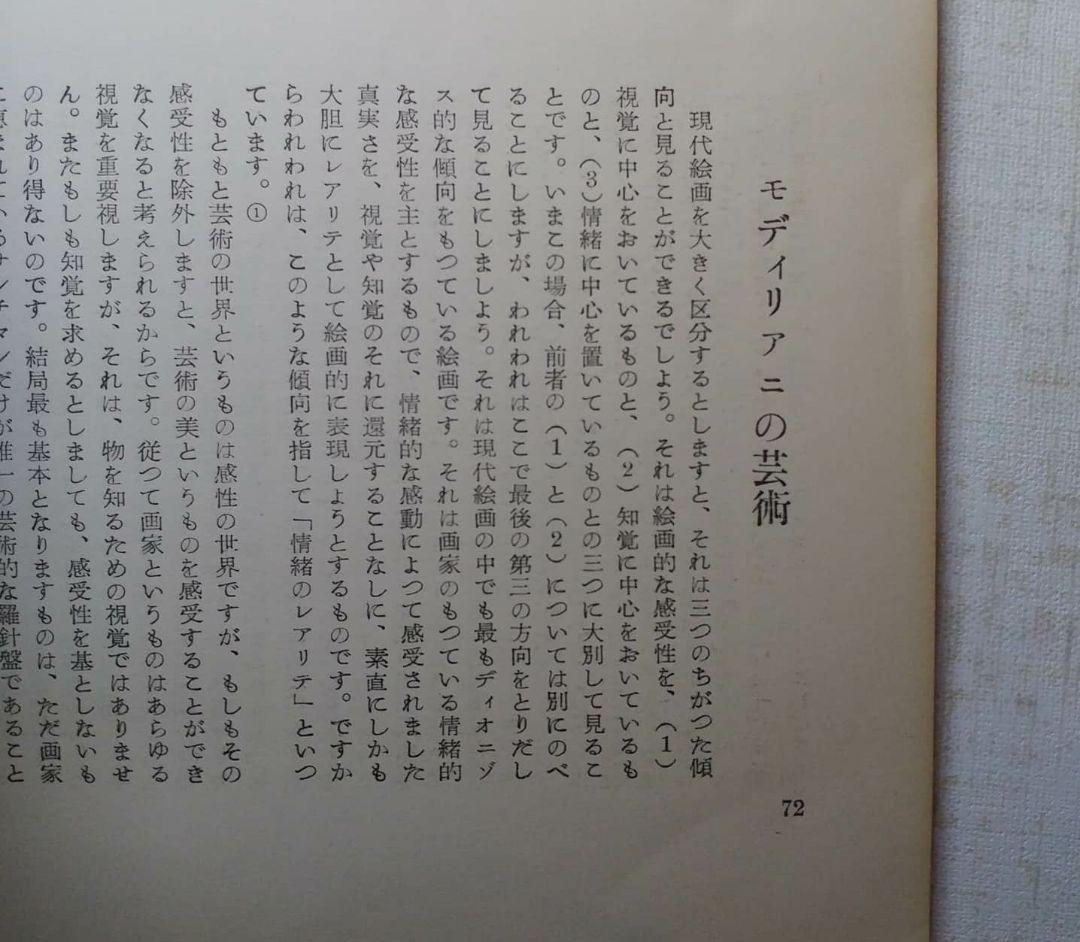 モディリアニの芸術
現代絵画を大きく区分するとしますと、それは三つのちがつた傾
向と見ることができるでしよう。それは絵画的な感受性を、(1)
視覚に中心をおいているものと、(2)知覚に中心をおいているも
のと、(3)情緒に中心を置いているものとの三つに大別して見るこ
とです。いまこの場合、前者の(1)と(2)については別にのべ
ることにしますが、われわれはここで最後の第三の方向をとりだし
て見ることにしましよう。それは現代絵画の中でも最もディオニゾ
ス的な傾向をもつている絵画です。それは画家のもつている情緒的
な感受性を主とするもので、情緒的な感動によつて感受されました
真実さを、視覚や知覚のそれに還元することなしに、素直にしかも
大胆にレアリテとして絵画的に表現しようとするものです。ですか
らわれわれは、このような傾向を指して「情緒のレアリテ」といつ
ています。①
もともと芸術の世界というものは感性の世界ですが、もしもその
感受性を除外しますと、芸術の美というものを感受することができ
なくなると考えられるからです。従つて画家というものはあらゆる
視覚を重要視しますが、それは、物を知るための視覚ではありませ
ん。またもしも知覚を求めるとしましても、感受性を基としないも
のはあり得ないのです。結局最も基本となりますものは、ただ画家
に恵まれているサンチマンだけが唯一の芸術的な羅針盤であること
72